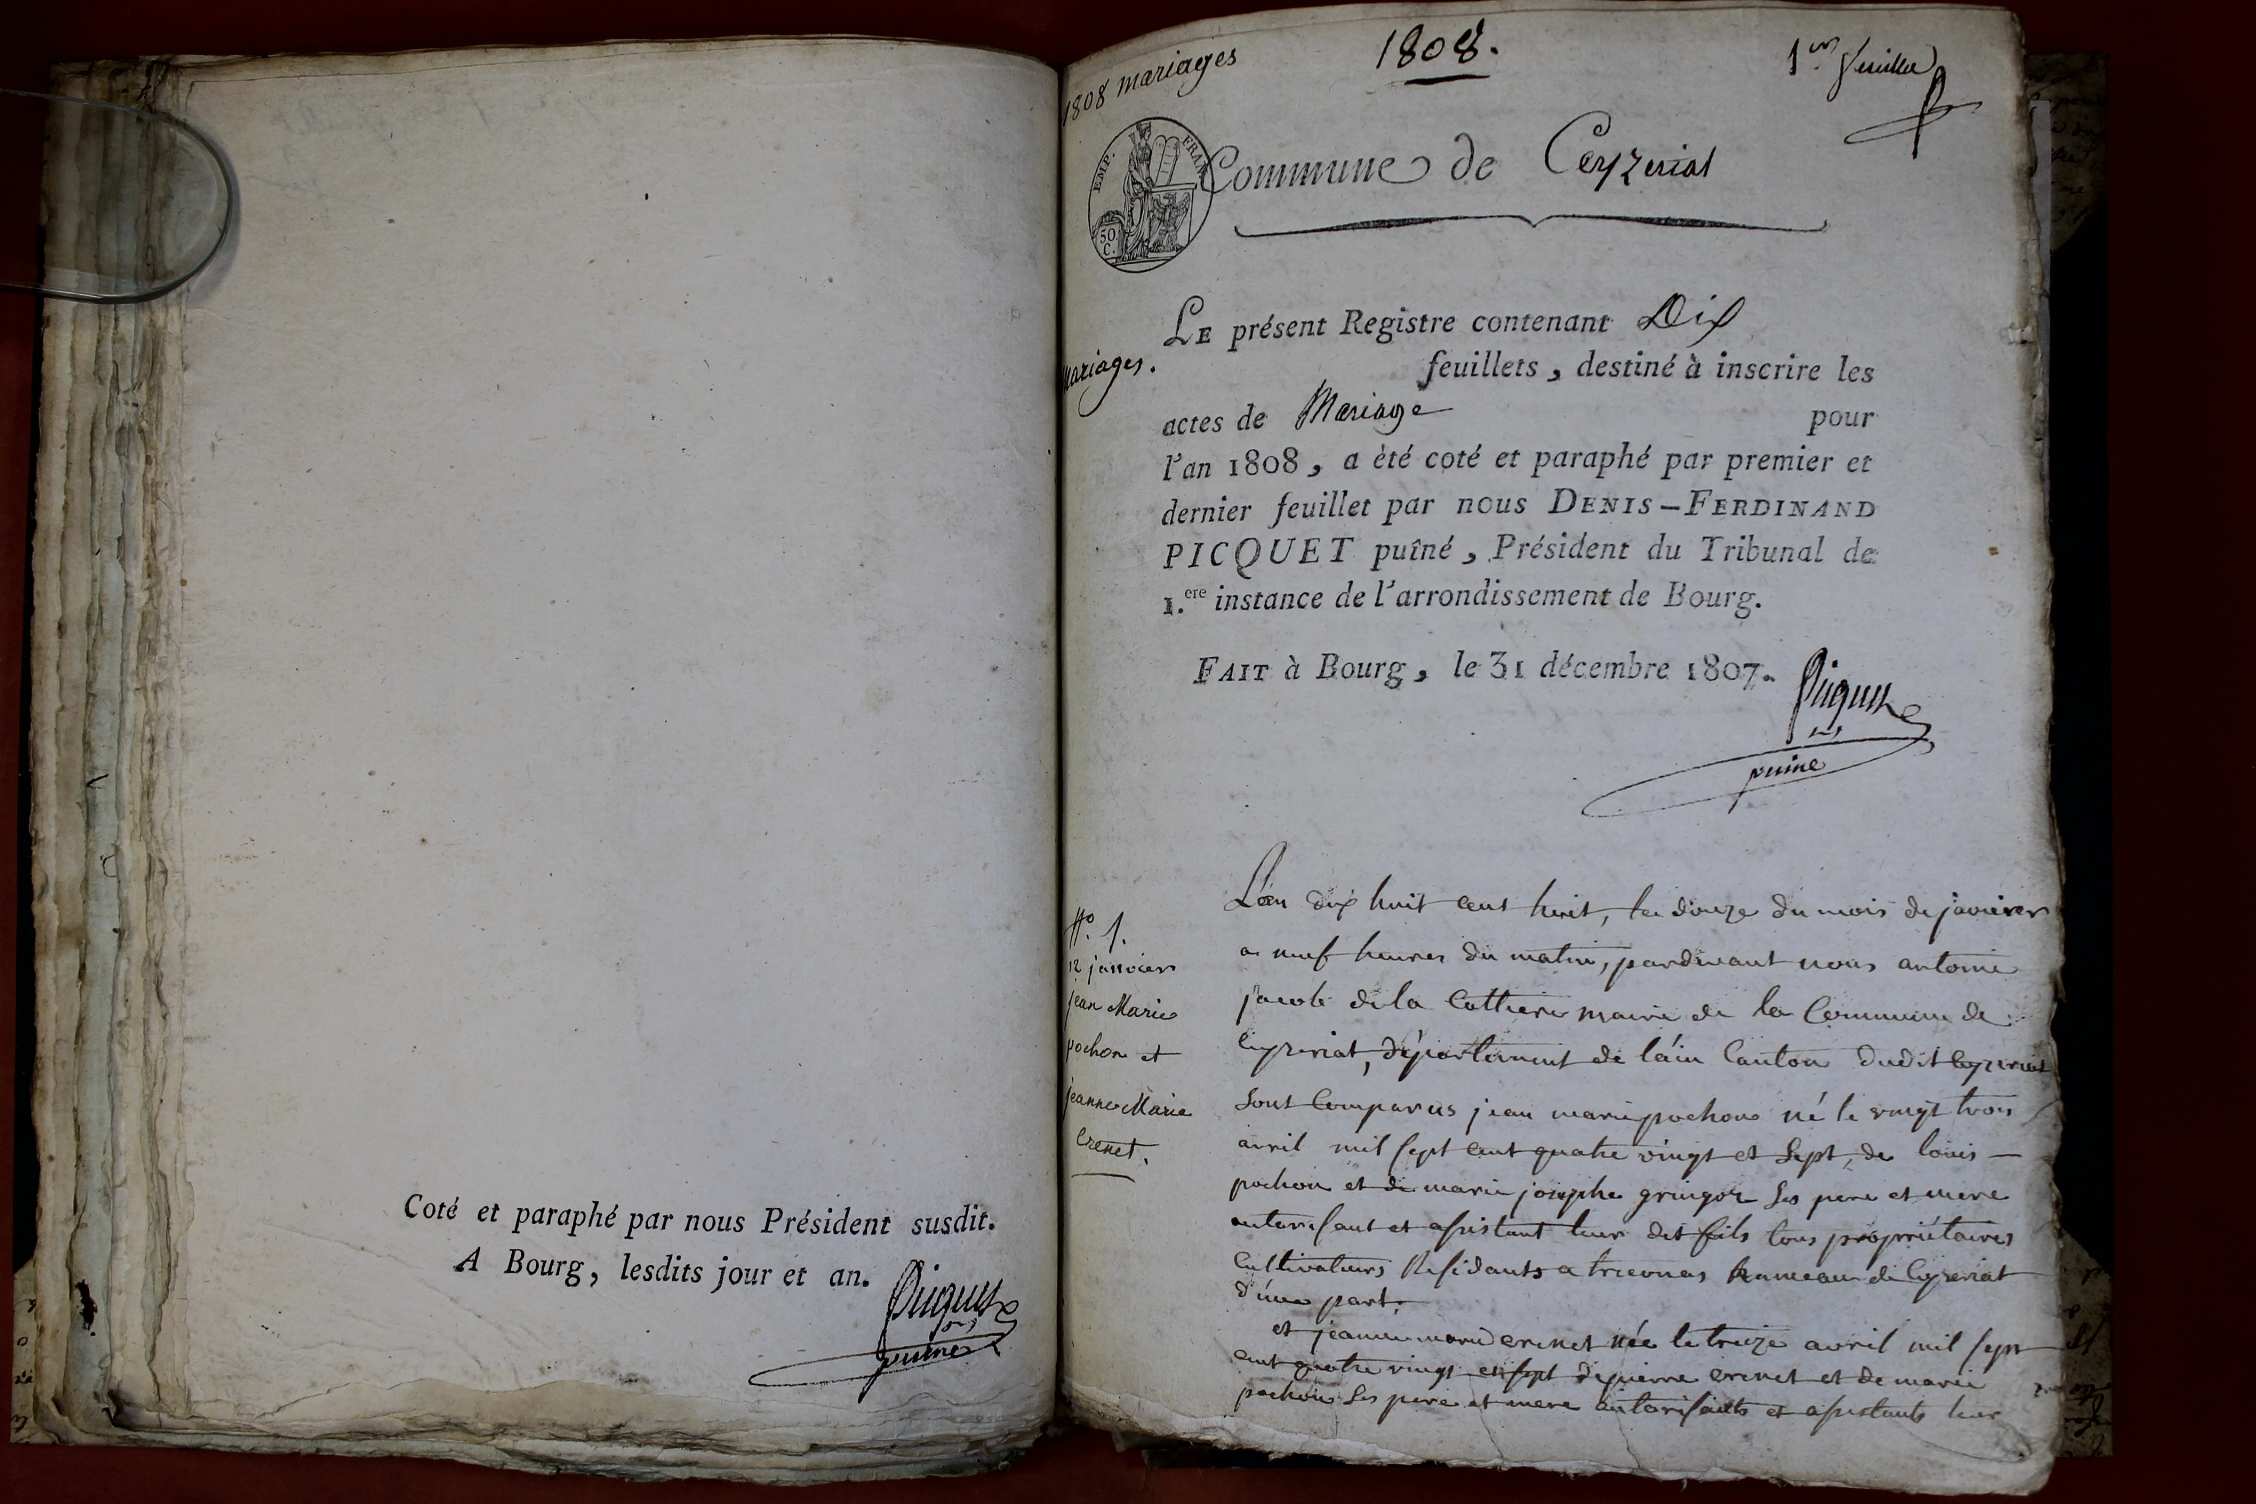 Coté et paraphé par nous Président susdit.
A Bourg, lesdits jour et an.
Picquet
puiné
1808 mariages
1808.
1er feuillet
EMP. FRAN.
50
C.
Commune de Ceyzeriat
Le présent Registre contenant Dix
mariages.
feuillets, destiné à inscrire les
actes de Mariage pour
l'an 1808, a èté coté et paraphé par premier et
dernier feuillet par nous Denis-Ferdinand
PICQUET puîné, Président du Tribunal de
1.ere instance de l'arrondissement de Bourg.
Fait à Bourg, le 31 décembre 1807.
Picquet
puiné
No. 1.
12 janvier
jean Marie
pochon et
jeanne Marie
Crenet.
L'an dix huit cent huit, le douze du mois de janvier
a neuf heures du matin, pardevant nous antoine
jacob de la Cottiere maire de la Commune de
Ceyzeriat, département de láin Canton dudit Ceyzeriat
Sont Comparus jean marie pochon né le vingt trois
avril mil sept cent quatre vingt et Sept, de louis
pochon et de marie josephe gringoz Ses pere et mere
autorisant et assistant leur dit fils tous propriétaires
Cultivateurs Residants a treconas hameau de Ceyzeriat
d'une part.
et jeanne marie crenet née le treize avril mil sept
cent quatre vingt et sept de pierre crenet et de marie
pochon Ses pere et mere autorisants et assistants leur